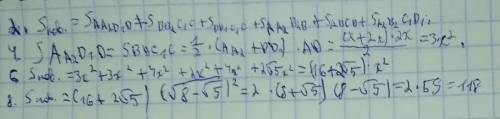 2. Sпов. = SAA₂D₁D + SDD₁C₁C + SBB₁C₁C + SAA₂B₁B + SABCD + SA₂B₁C₁D₁;
4. SAA₂D₁D = SBB₁C₁C = 1/2 · (AA₂ + DD₁) · AD = (x+2x)·2x / 2 = 3x².
6 Sпов. = 3x² + 3x² + 4x² + 2x² + 4x² + 2√5x² = (16 + 2√5) · x²
8. Sпов. = (16 + 2√5) (√8-√5)² = 2 · (8 + √5) (8 - √5) = 2 · 59 = 118